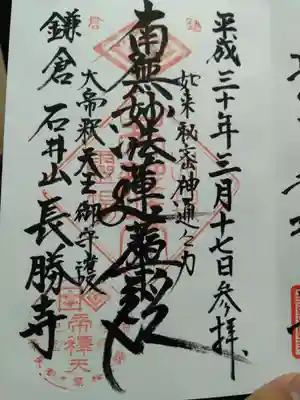 平成三十年三月十七日参拝
如来秘密神通之力
南無妙法蓮華経
大帝釈天王御守護
鎌倉 石井山 長勝寺
帝釋天